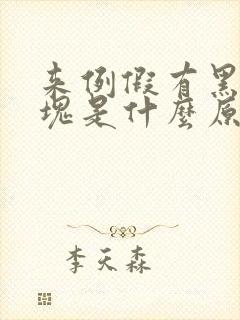 来例假有黑
塊是什麼原
李天森